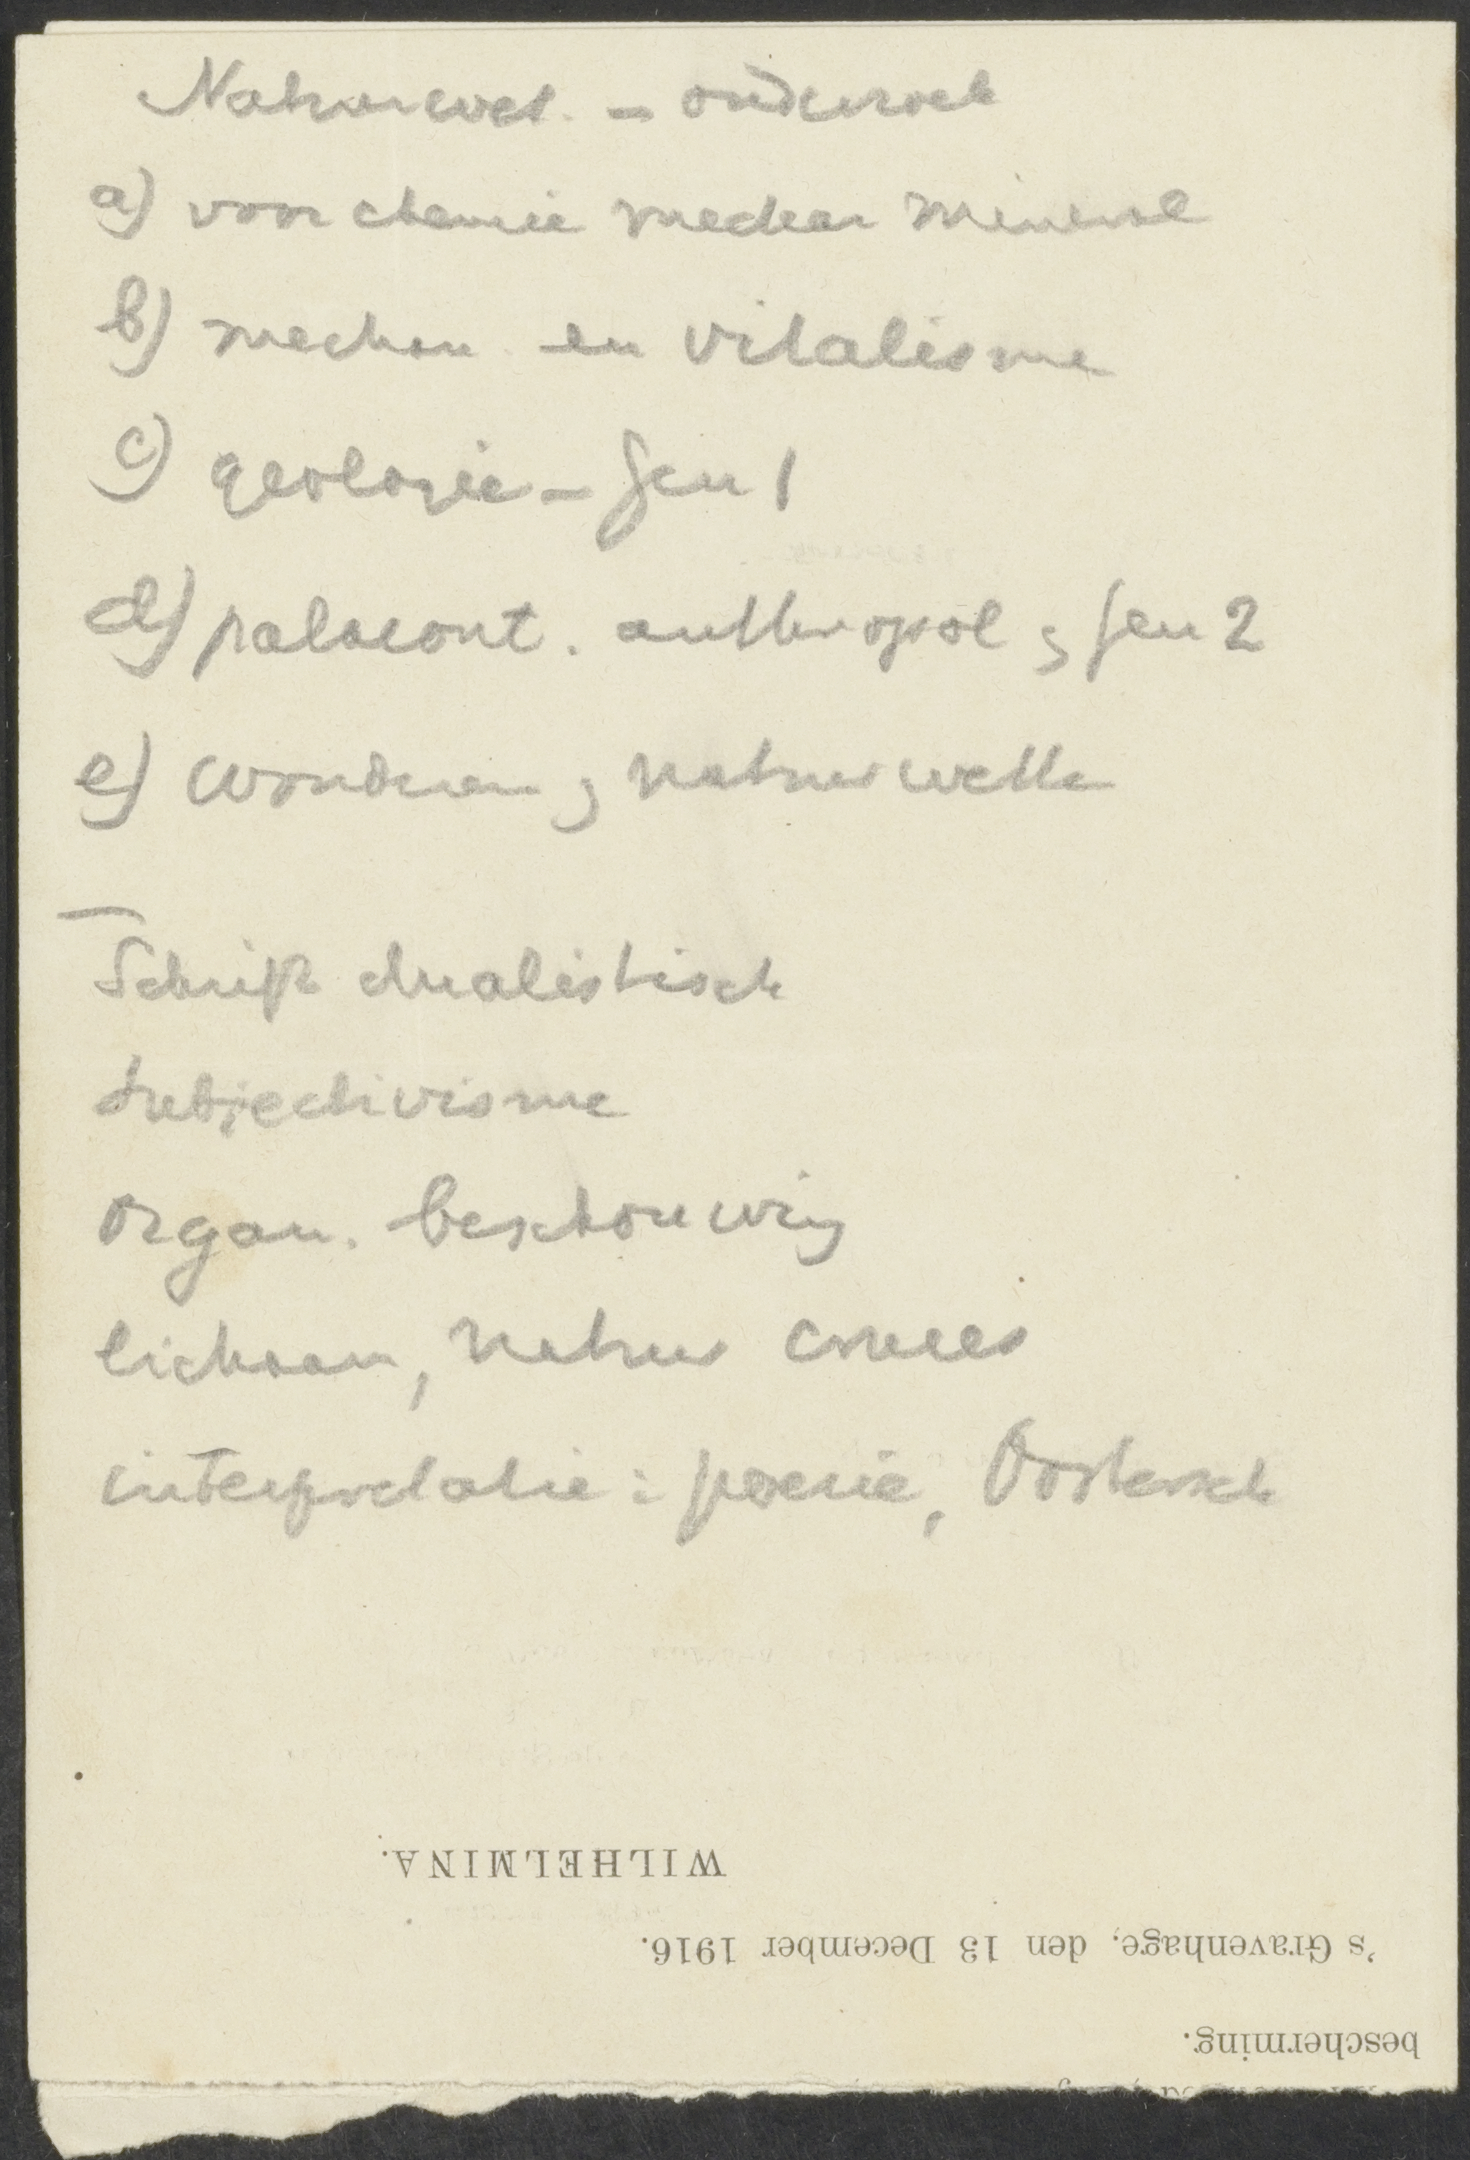 Natuurwet. - onderzoek
a) voor chemie
b) mechan. en vitalisme
c) geologie - Gen 1
d) palaeont. anthropol ; Gen 2
e) wonderen ; natuurwette
Schrift dualistisch
subjectivisme
organ. beschouwing
lichaam, natuur
interpretatie : poezie, Oostersch
WILHELMINA.
's Gravenhage, den 13 December 1916.
bescherming.